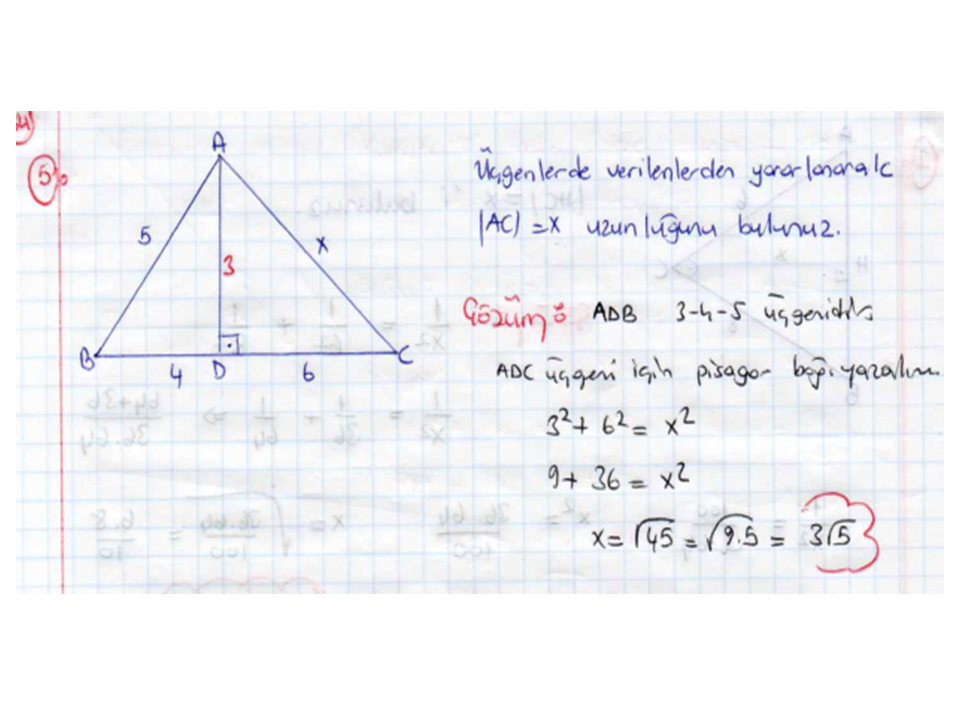 5)
A
5
x
3
B
4
D
6
C
Üçgenlerde verilenlerden yararlanarak
|AC| = x uzunluğunu bulunuz.
Çözüm: ADB 3-4-5 üçgenidir
ADC üçgeni için pisagor bağ. yazalım
3² + 6² = x²
9 + 36 = x²
x = √45 = √9.5 = 3√5